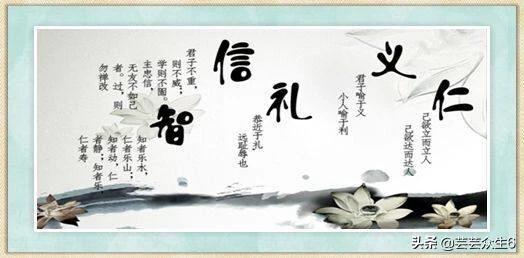 仁
己欲立而立人
己欲达而达人
义
君子喻于义
小人喻于利
礼
恭近于扎
远耻辱也
信
君子不重，
则不威；
学则不固。
主忠信，
无友不如己
者。过，则
勿禅改
智
知者乐水，
仁者乐山；
知者动，仁
者静；知者乐，
仁者寿
头条 @芸芸众生6